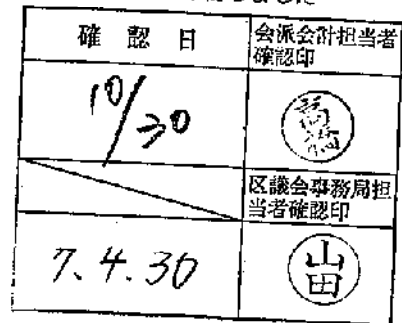 しました
確認日
会派会計担当者
確認印
10/30
高橋
区議会事務局担
当者確認印
7.4.30
山田